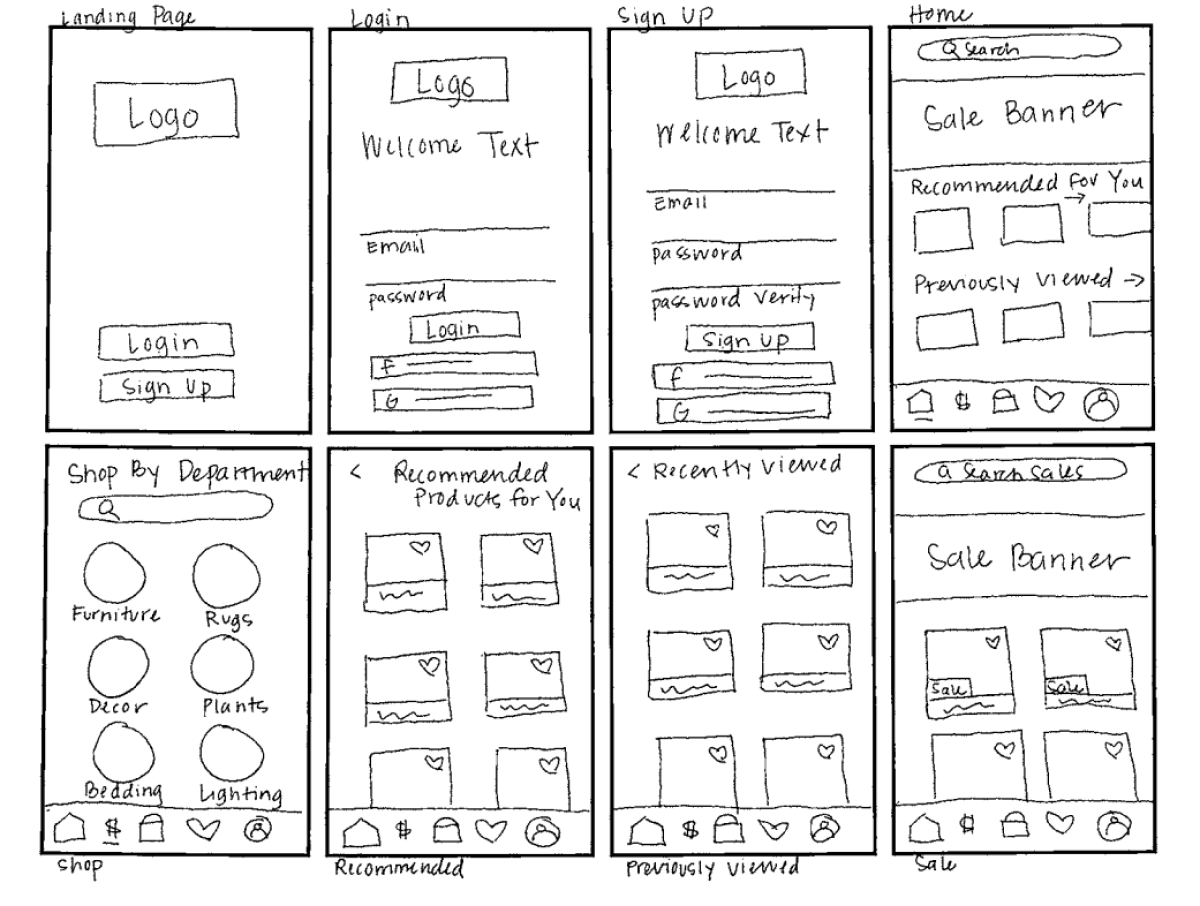 Landing Page
Logo
Login
Sign Up
Login
Logo
Welcome Text
Email
password
Login
F
G
Sign Up
Logo
Welcome Text
Email
password
password Verify
Sign Up
f
G
Home
Search
Sale Banner
Recommended For You →
Previously Viewed →
$
Shop By Department
Furniture
Rugs
Decor
Plants
Bedding
Lighting
$
Shop
< Recommended
Products for You
$
Recommended
< Recently Viewed
$
Previously Viewed
Search Sales
Sale Banner
Sale
Sale
$
Sale